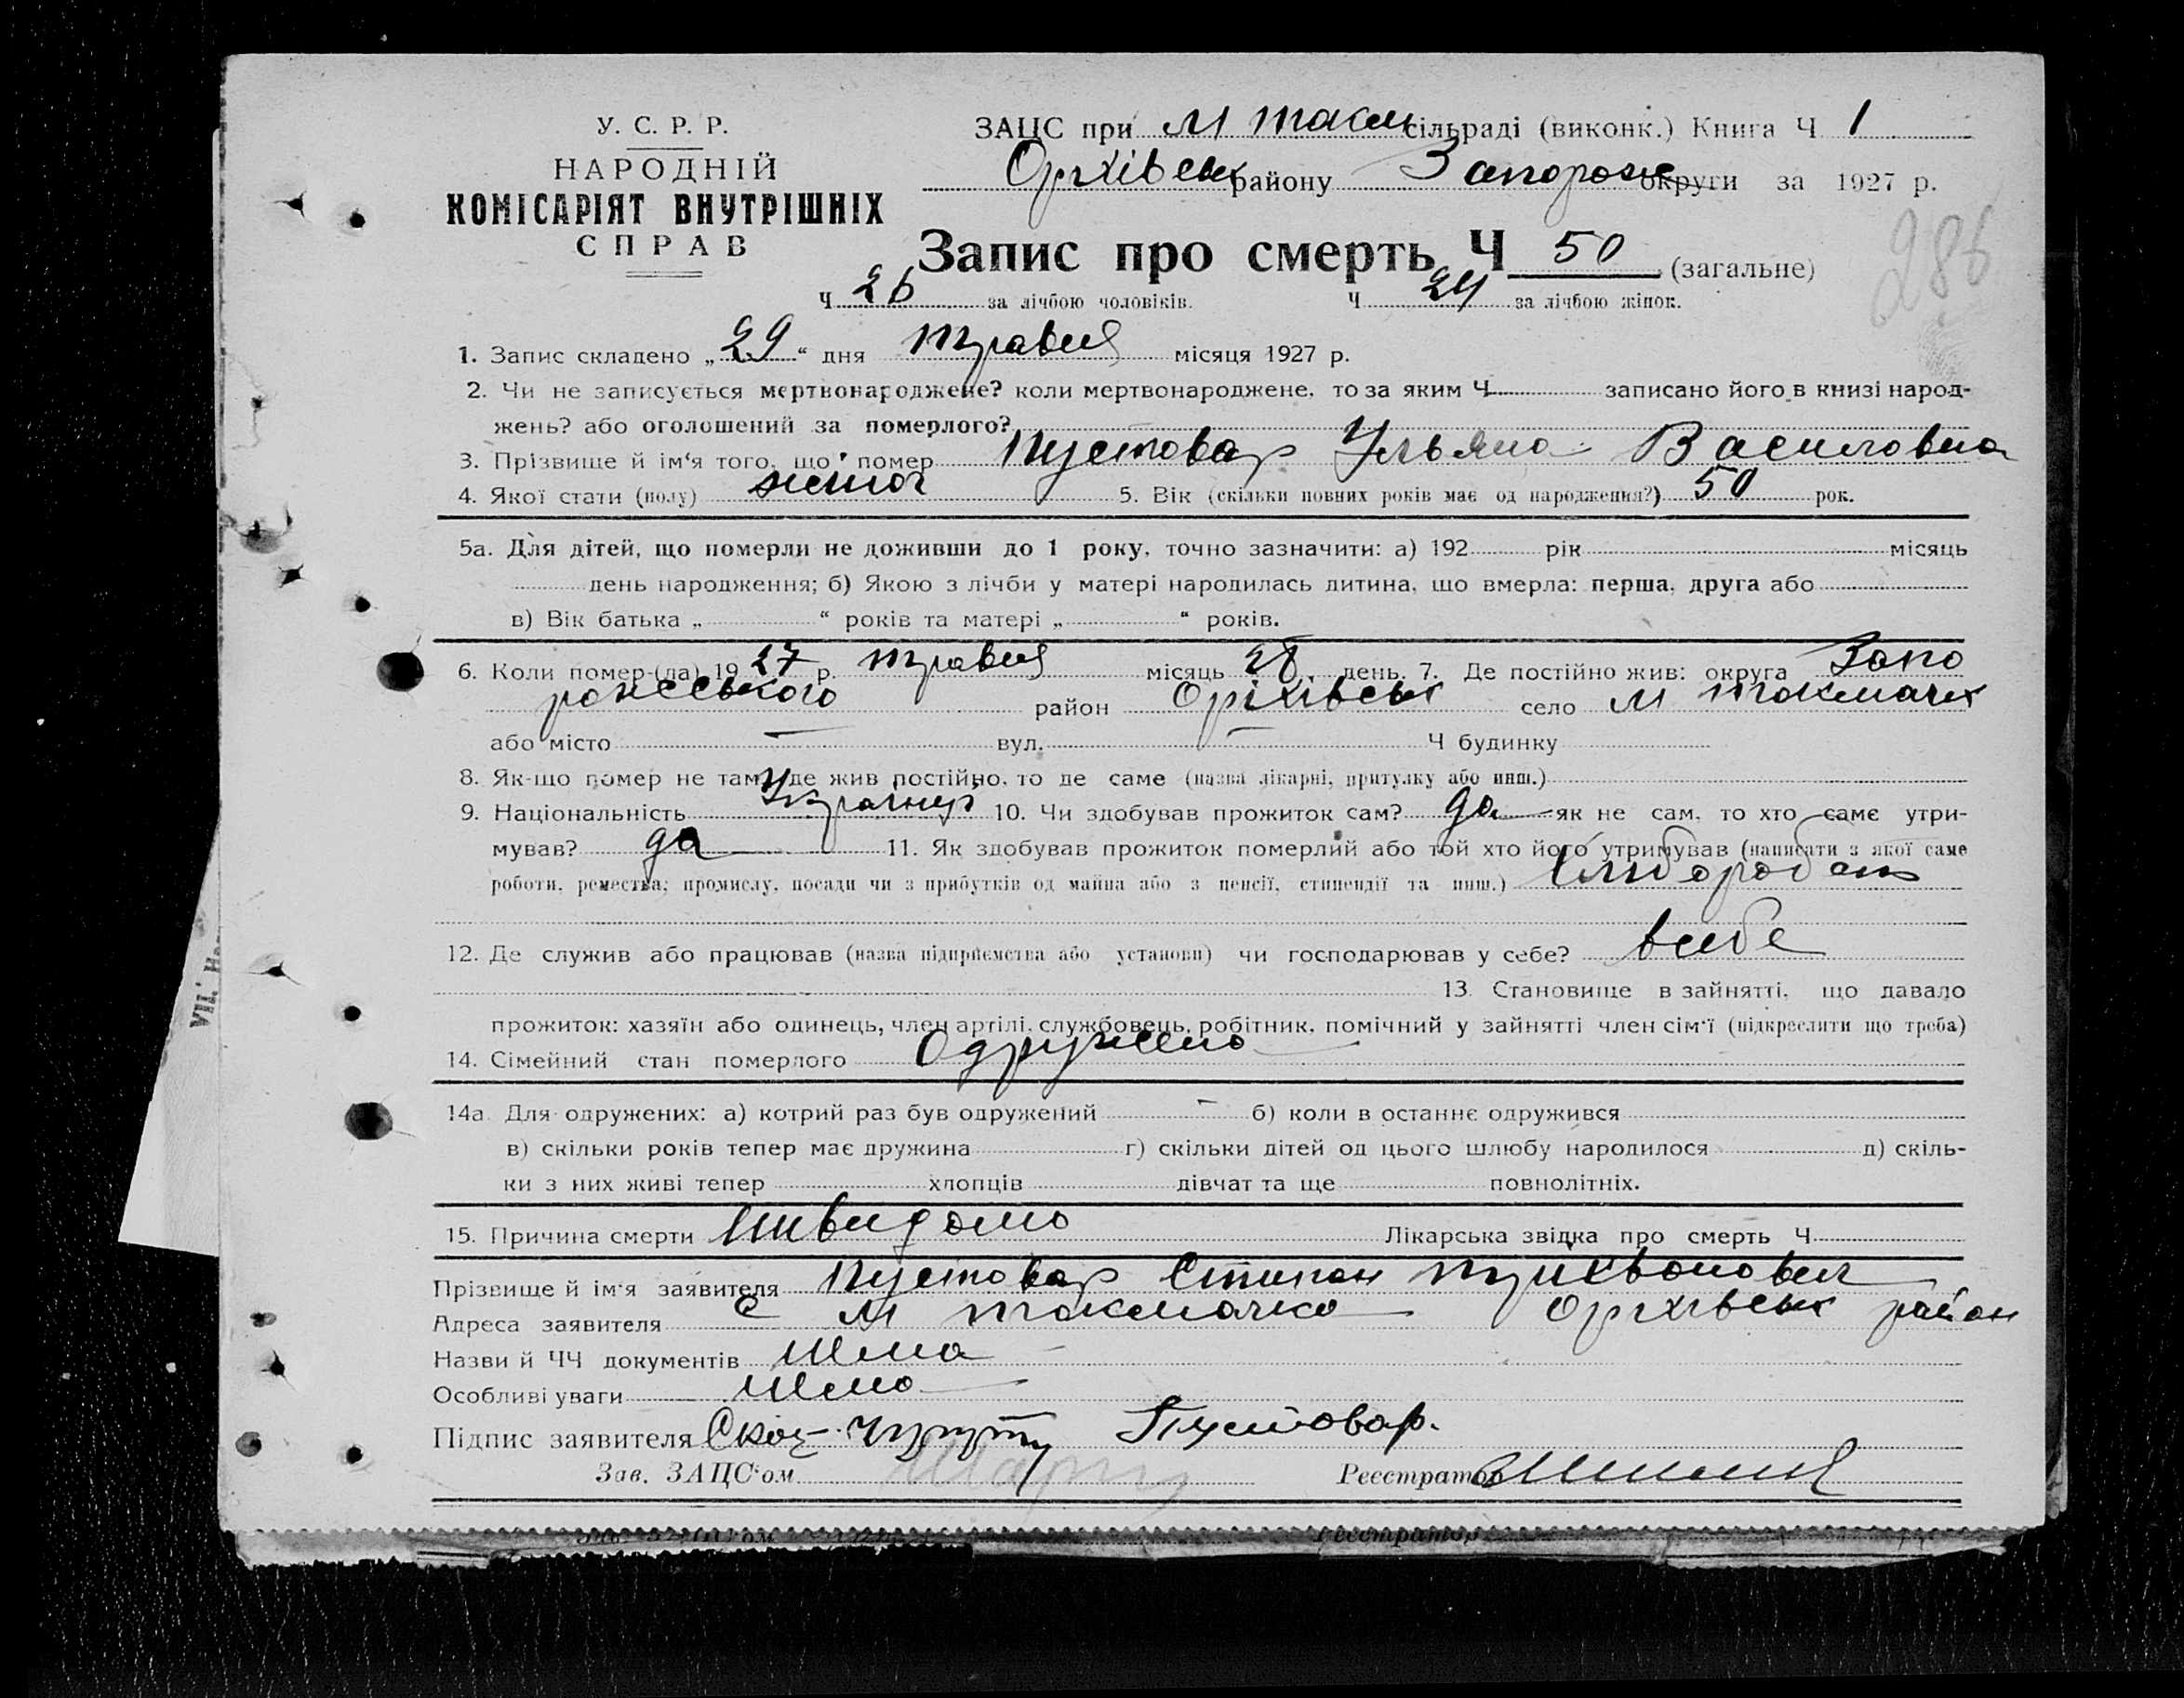 У. С. Р. Р.
НАРОДНІЙ
КОМІСАРІЯТ ВНУТРІШНІХ
СПРАВ
ЗАЦС при М Токм сільраді (виконк.) Книга Ч 1
Оріхівськ району Запорож округи за 1927 р.
Запис про смерть Ч 50 (загальне)
286
Ч 26 за лічбою чоловіків. Ч 24 за лічбою жінок.
1. Запис складено „29“ дня травня місяця 1927 р.
2. Чи не записується мертвонароджене? коли мертвонароджене, то за яким Ч записано його в книзі народ-
жень? або оголошений за померлого?
3. Прізвище й ім‘я того, що помер Пустовар Ульяна Василовна
4. Якої стати (полу) жіноч 5. Вік (скільки повних років має од народження?) 50 рок.
5а. Для дітей, що померли не доживши до 1 року, точно зазначити: а) 192 рік місяць
день народження; б) Якою з лічби у матері народилась дитина, що вмерла: перша, друга або
в) Вік батька „ “ років та матері „ “ років.
6. Коли помер-(ла) 1927 р. травня місяць 28 день. 7. Де постійно жив: округа Запо
рожського район Оріхівськ село М Токмачк
або місто — вул. — Ч будинку
8. Як-що помер не там, де жив постійно, то де саме (назва лікарні, притулку або инш.)
9. Національність 10. Чи здобував прожиток сам? да як не сам, то хто саме утри-
мував? да 11. Як здобував прожиток померлий або той хто його утримував (написати з якої саме
роботи, ремества, промислу, посади чи з прибутків од майна або з пенсії, стипендії та инш.)
12. Де служив або працював (назва підприємства або установи) чи господарював у себе? всебе
13. Становище в зайнятті, що давало
прожиток: хазяїн або одинець, член артілі, службовець, робітник, помічний у зайнятті член сім‘ї (підкреслити що треба)
14. Сімейний стан померлого Одружено
14а. Для одружених: а) котрий раз був одружений — б) коли в останнє одружився
в) скільки років тепер має дружина г) скільки дітей од цього шлюбу народилося д) скіль-
ки з них живі тепер хлопців дівчат та ще повнолітніх.
15. Причина смерти Лікарська звідка про смерть Ч
Прізвище й ім‘я заявителя Пустовар Степан
Адреса заявителя с М Токмачка Оріхівськ район
Назви й ЧЧ документів Нема
Особливі уваги Немо
Підпис заявителя Пустовар.
Зав. ЗАЦС‘ом Реєстратор